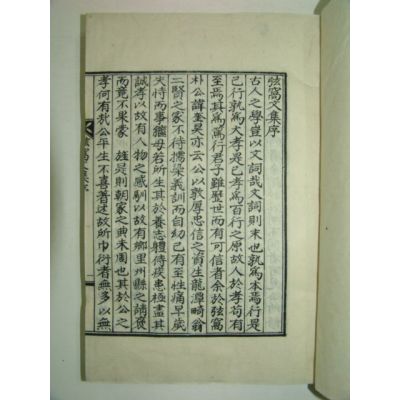 弦窩文集序
古人之學豈以文詞哉文詞則末也孰爲本焉行是
已行孰爲大孝是已孝爲百行之原故人於孝苟有
至焉其爲行君子雖歷世而有可信者余於弦窩
朴公諱奎昊亦云公以敦厚忠信之資生龍潭畸翁
二賢之家不待擩染義訓而自幼已有至性痛早歲
失恃而事獨母若所生其於養志體侍疾患極盡其
誠孝以故有人物之感馴以故有鄉里州縣之請褒
而竟不果蒙 旌是則朝家之典未周也其於公之
孝何有哉公平生不喜著述故所巾衍者無多以無
弦窩文集序
一